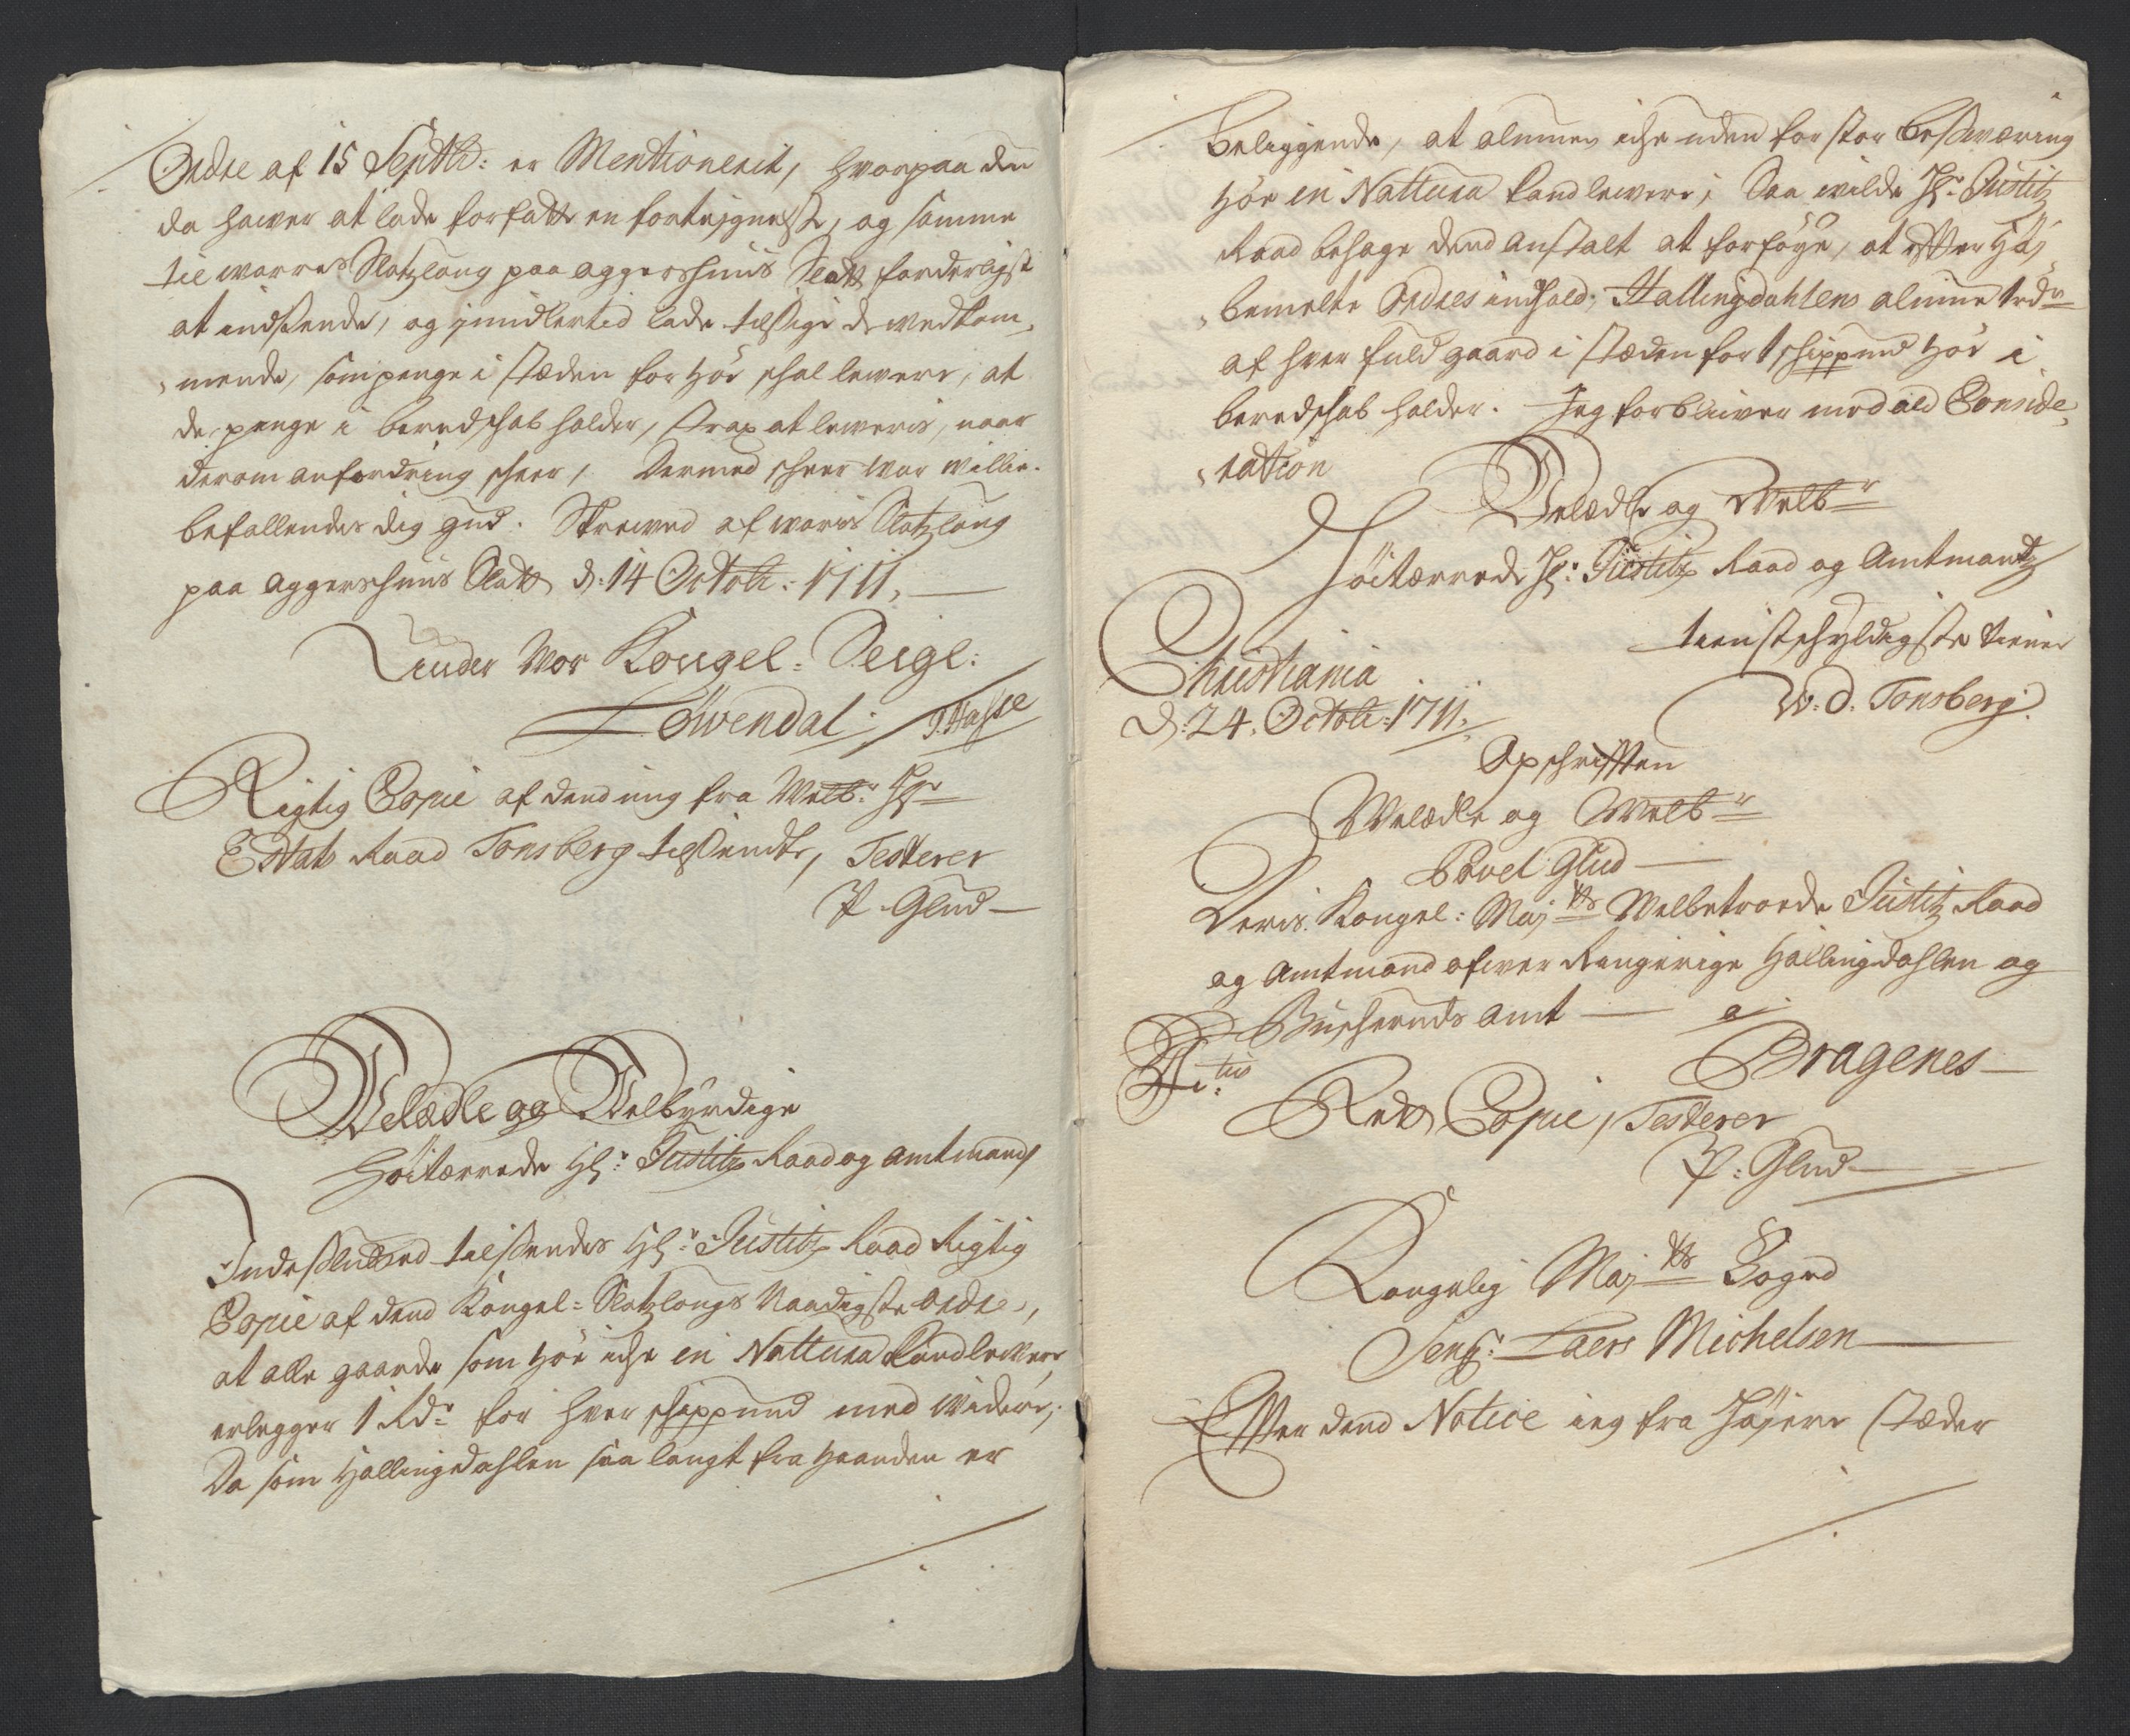 Ordre af 15 Septbr: er Mentionerit, hvorpaa du
da hawer at lade forfatte en fortejgnelse, og samme
til worres Slotzlong paa Aggershuus Slott forderligst
at indsende, og jmidlertid lade tilsige de wedkom„
„mende, som penge i stæden for Höe schal lewere, at
de penge i beredschab holder, strax at leweris, naar
derom anfordring scheer, Dermed scheer wor willie.
befallendes dig gud. Skrewed af worris Slotzlong
paa Aggershuus Slott d: 14 Octobr: 1711,
under Vor Kongel: Seigl:
Löwendal: / J: Hasse
Rigtig Copie af dend mig fra Welb:r Hr
Ettats Raad Tonsberg tilsendte, Testerer
P: Glud
Welædle og Welbÿrdige
Höitærrede Hr: Justitz Raad og Amtmand
Indeslutted tilsendes Hr: Justitz Raad Rigtig
Copie af dend Kongel: Slotzlongs Naadigste ordre,
at alle gaarde som Höe iche in Nattura kand lewere
erlegger 1 Rdr for hver schippund med widere,
Da som Hallingdahlen saa langt fra Haanden er
beliggende, at almuen iche uden for stor beswæring
Höe in Nattura kand lewere; Saa wilde Hr: Justitz
Raad behage dend anstalt at forföye, at effter Höj„
„bemelte Ordres indhold, Hallingdahlens almue 1 rdr
af hver fuld gaard i stæden for 1 schippund Höe i
beredschab holder. Jeg forbliwer med ald Conside„
„ration
Welædle og Welbr
Höitærrede Hr: Justitz Raad og Amtmandz
tienstschyldigste tiener
Christiania
d: 24. Octobr: 1711,
W: D: Tonsberg
Opschrifften
Welædle og Welbr
Povel Glud
Deris Kongel: Majtts Welbetroede Justitz Raad
og Amtmand ofwer Ringerige Hallingdahlen og
Buscheruds Amt a
Bragenes
Rett Copie, Testerer
P: Glud
Kongelig Majtts Fogud
Sengr: Laers Michelsen
Effter dend Notice ieg fra Höjere stæder